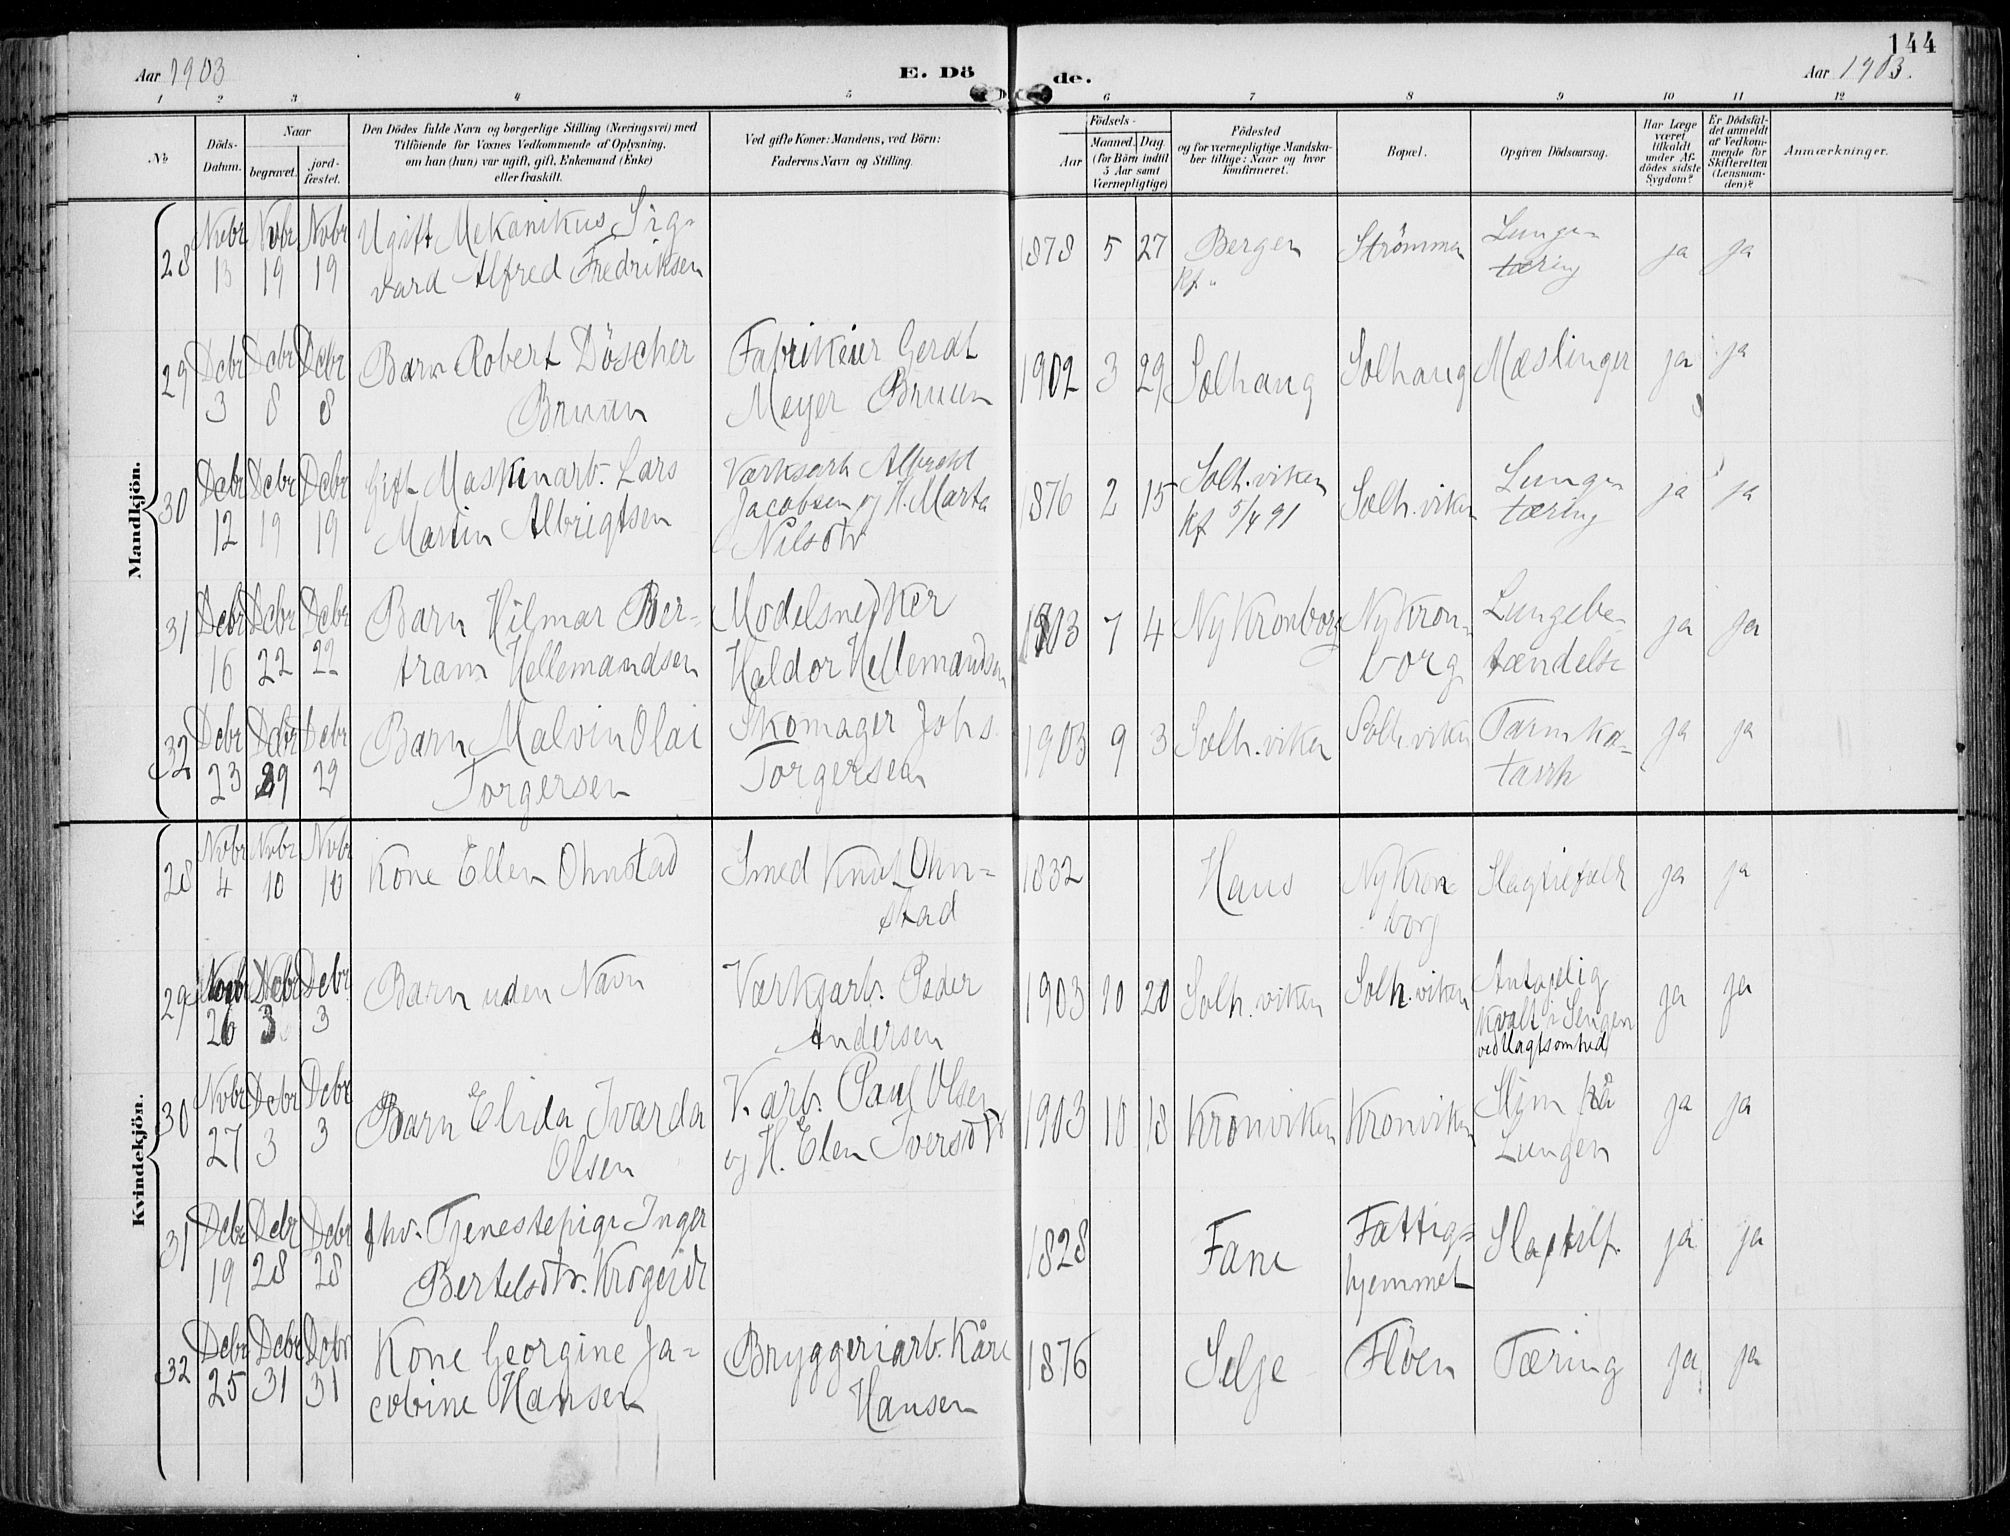 144
Aar 1903 E. Döde. Aar 1903.
1 2 3 4 5 6 7 8 9 10 11 12
No
Döds-Datum.
Naar
begravet.
jord-fæstet.
Den Dödes fulde Navn og borgerlige Stilling (Næringsvei) med
Tilföiende for Voxnes Vedkommende af Oplysning,
om han (hun) var ugift, gift, Enkemand (Enke)
eller fraskilt.
Ved gifte Koner: Mandens, ved Börn:
Faderens Navn og Stilling.
Födsels-
Aar
Maaned. Dag.
(for Börn indtil
5 Aar samt
Værnepligtige)
Födested
og for værnepligtige Mandska-
ber tillige: Naar og hvor
konfirmeret.
Bopæl.
Opgiven Dödsaarsag.
Har Læge
været
tilkaldt
under Af-
dödes sidste
Sygdom?
Er Dödsfal-
det anmeldt
af Vedkom-
mende for
Skifteretten
(Lensman-
den)?
Anmærkninger.
Mandkjön.
28 Nvbr 13 Nvbr 19 Nvbr 19 Ugift Mekanikus Sig-
vard Alfred Fredriksen
1878 5 27 Bergen Kf. " Strömmen Lunge-
tæring ja ja
29 Dcbr 3 Dcbr 8 Dcbr 8 Barn Robert Döscher
Bruun
Fabrikeier Gerdt
Meyer Bruun
1902 3 29 Solhaug Solhaug Mæslinger ja ja
30 Dcbr 12 Dcbr 19 Dcbr 19 Gift Maskinarb. Lars
Martin Albrigtsen
Værksarb Albrekt
Jacobsen og H. Marta
Nilsdtr
1876 2 15 Solh.viken
Kf 5/4 91 Solh.viken Lunge
tæring ja ja
31 Dcbr 16 Dcbr 22 Dcbr 22 Barn Hilmar Ber-
tram Hellemandsen
Modelsnedker
Haldor Hellemandsen
1903 7 4 Ny Kronborg Ny Kron-
borg Lungebe-
tændelse ja ja
32 Dcbr 23 Dcbr 29 Dcbr 29 Barn Malvin Olai
Torgersen
Skomager Johs.
Torgersen
1903 9 3 Solh.viken Solh.viken Tarmka-
tarrh ja ja
Kvindekjön.
28 Nvbr 4 Nvbr 10 Nvbr 10 Kone Ellen Ohnstad
Smed Knut Ohn-
stad
1832 Haus Ny Kron
borg Slagtilfæld ja ja
29 Nvbr 26 Dcbr 3 Dcbr 3 Barn uden Navn
Værksarb. Peder
Andersen
1903 10 20 Solh.viken Solh.viken Antagelig
kvalt i Sengen
ved Uagtsomhed ja ja
30 Nvbr 27 Dcbr 3 Dcbr 3 Barn Elida Ivarda
Olsen
V. arb. Paul Olsen
og H. Elen Iversdtr
1903 10 18 Kronviken Kronviken Slim på
Lungen ja ja
31 Dcbr 19 Dcbr 28 Dcbr 28 fhv. Tjenestepige Inger
Bertelsdtr.
1828 Fane Fattig-
hjemmet Slagtilf. ja ja
32 Dcbr 25 Dcbr 31 Dcbr 31 Kone Georgine Ja-
cobine Hansen
Bryggeriarb. Kåre
Hansen
1876 Selje Flöen Tæring ja ja